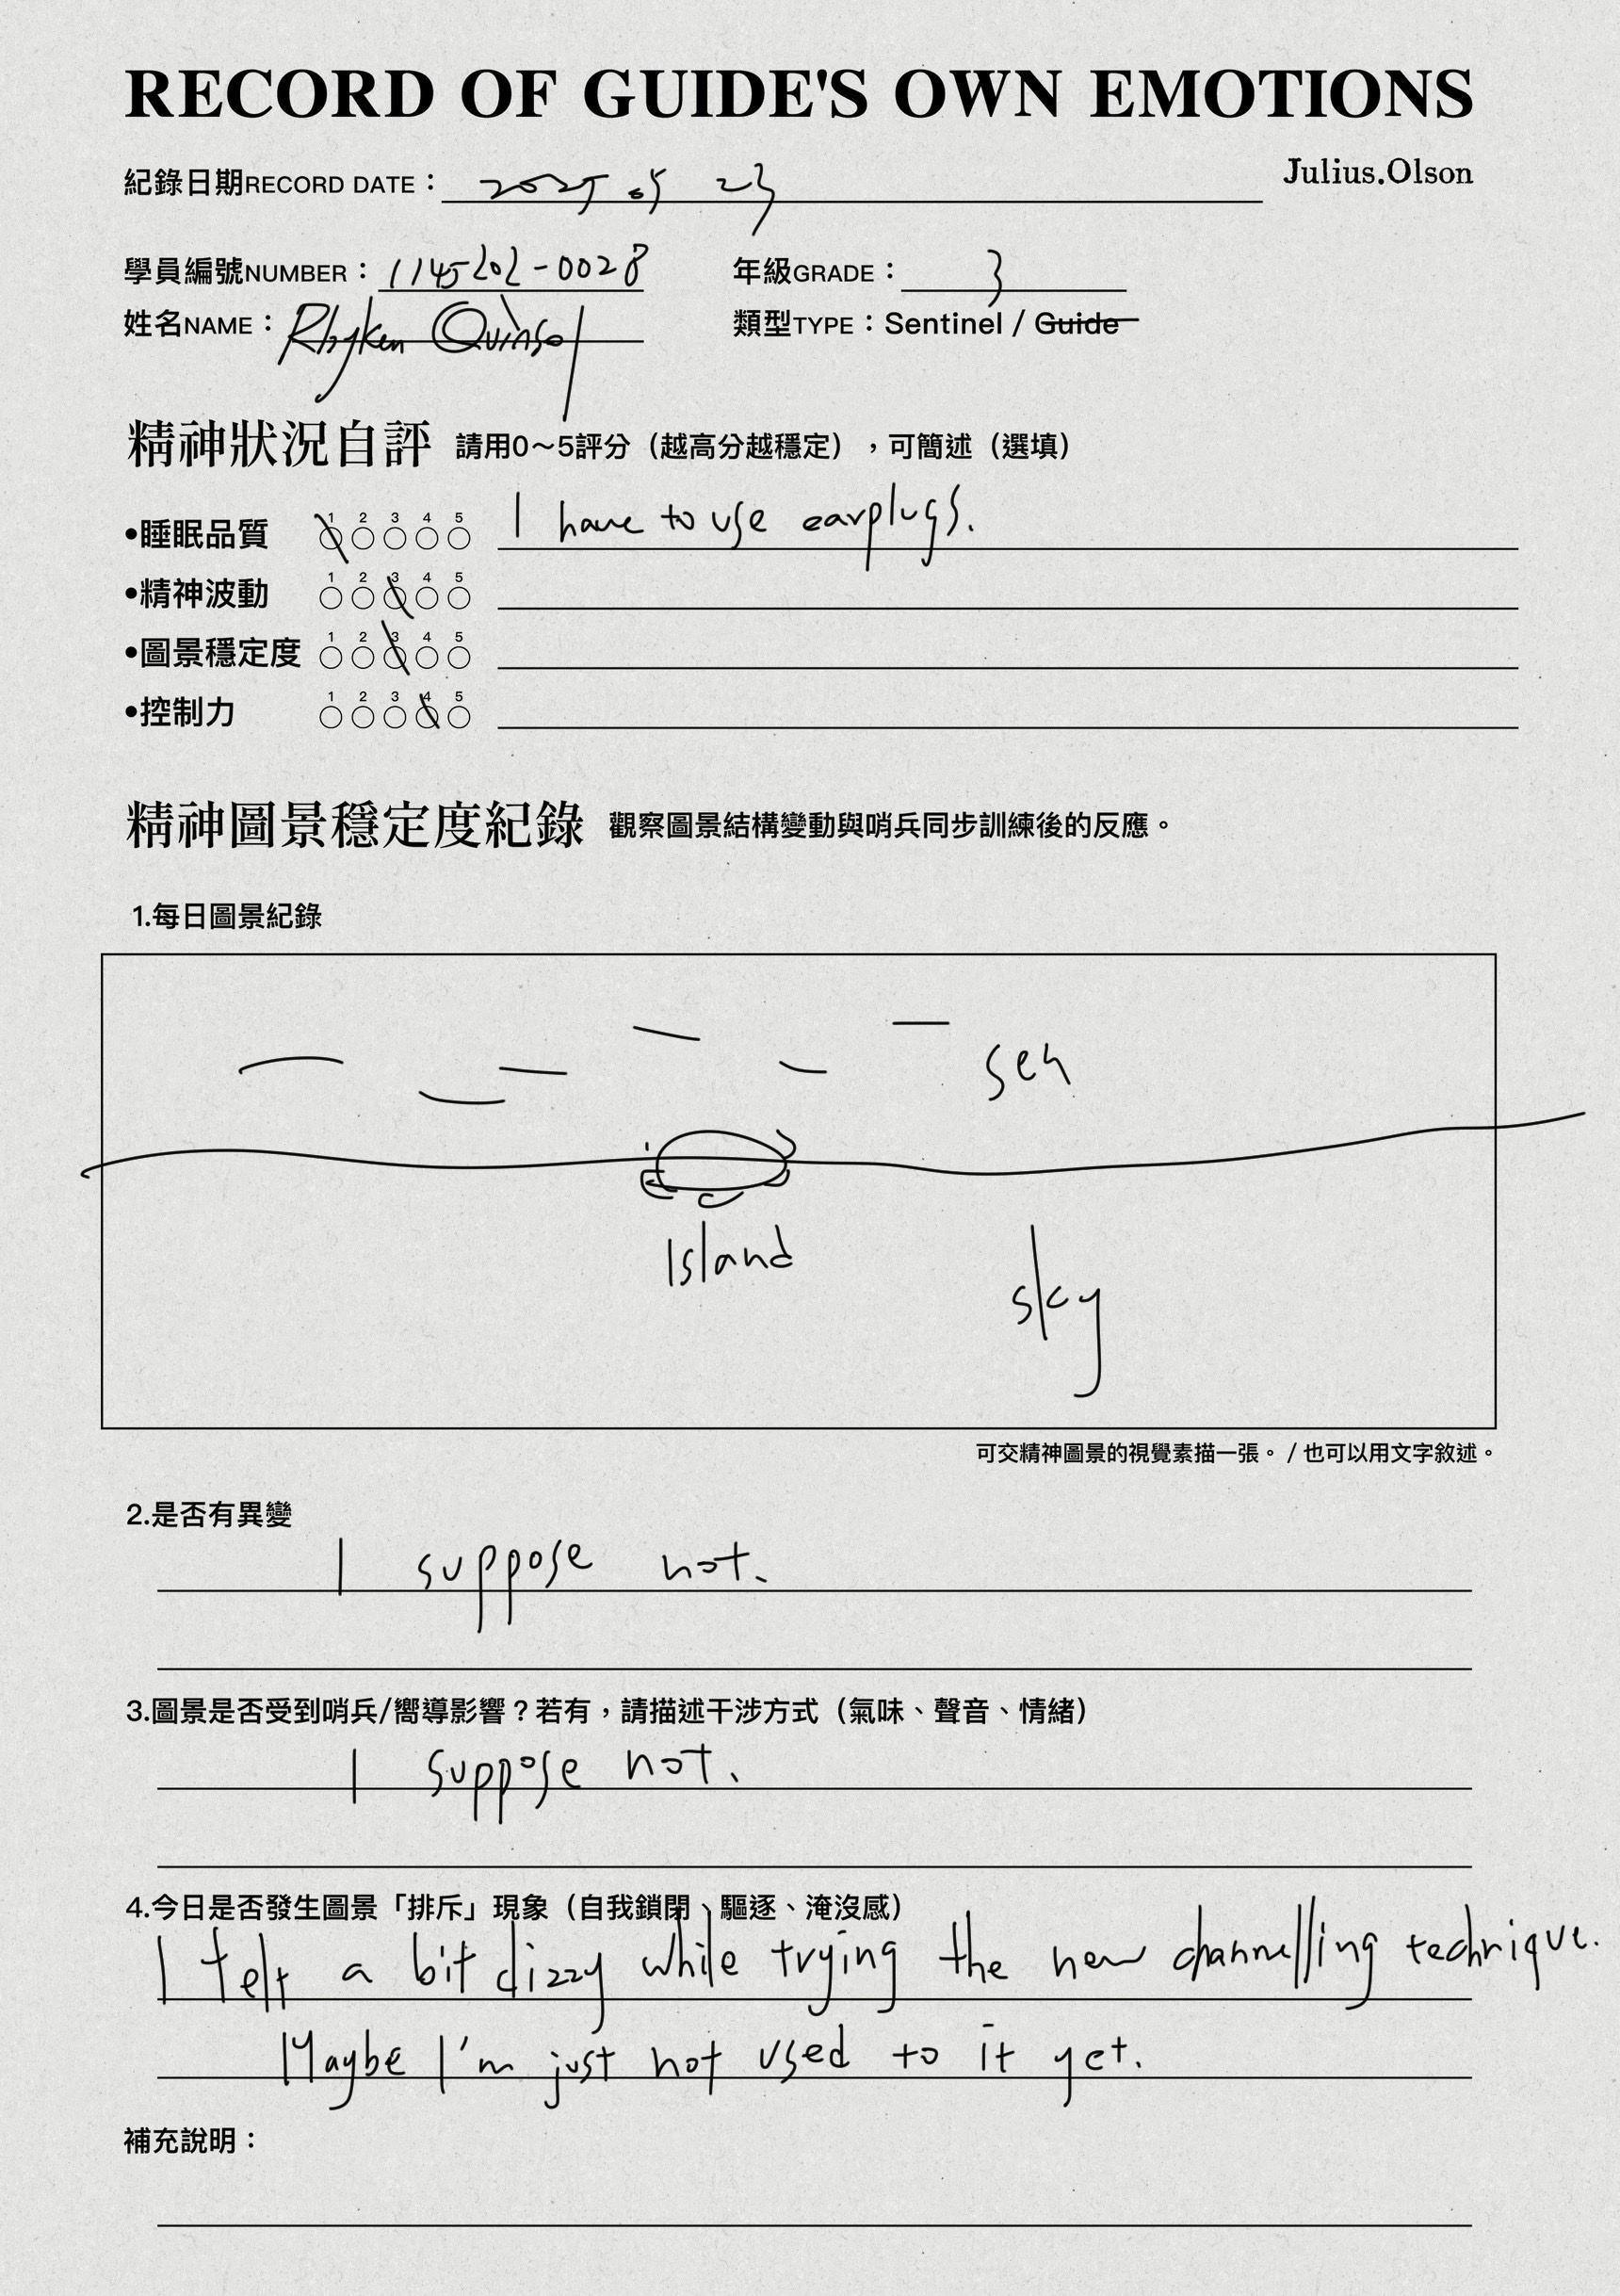 RECORD OF GUIDE'S OWN EMOTIONS
Julius.Olson
紀錄日期RECORD DATE：2025.05 23
學員編號NUMBER：1145202-0028 年級GRADE：3
姓名NAME：Rhyken 類型TYPE：Sentinel / Guide
精神狀況自評 請用0～5評分（越高分越穩定），可簡述（選填）
•睡眠品質 1 2 3 4 5 I have to use earplugs.
•精神波動 1 2 3 4 5
•圖景穩定度 1 2 3 4 5
•控制力 1 2 3 4 5
精神圖景穩定度紀錄 觀察圖景結構變動與哨兵同步訓練後的反應。
1.每日圖景紀錄
sea
Island
sky
可交精神圖景的視覺素描一張。 / 也可以用文字敘述。
2.是否有異變
I suppose not.
3.圖景是否受到哨兵/嚮導影響？若有，請描述干涉方式（氣味、聲音、情緒）
I suppose not.
4.今日是否發生圖景「排斥」現象（自我鎖閉、驅逐、淹沒感）
I felt a bit dizzy while trying the new channelling technique.
Maybe I'm just not used to it yet.
補充說明：